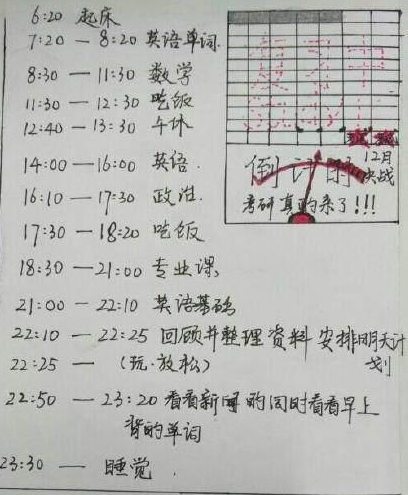 6:20 起床
7:20 — 8:20 英语单词.
8:30 — 11:30 数学
11:30 — 12:30 吃饭
12:40 — 13:30 午休
14:00 — 16:00 英语.
16:10 — 17:30 政治.
17:30 — 18:20 吃饭
18:30 — 21:00 专业课
21:00 — 22:10 英语基础
22:10 — 22:25 回顾并整理资料 安排明天计
划
22:25 — (玩·放松)
22:50 — 23:20 看看新闻的同时看看早上
背的单词
23:30 — 睡觉.
倒计时
12月
决战
考研真的来了!!!